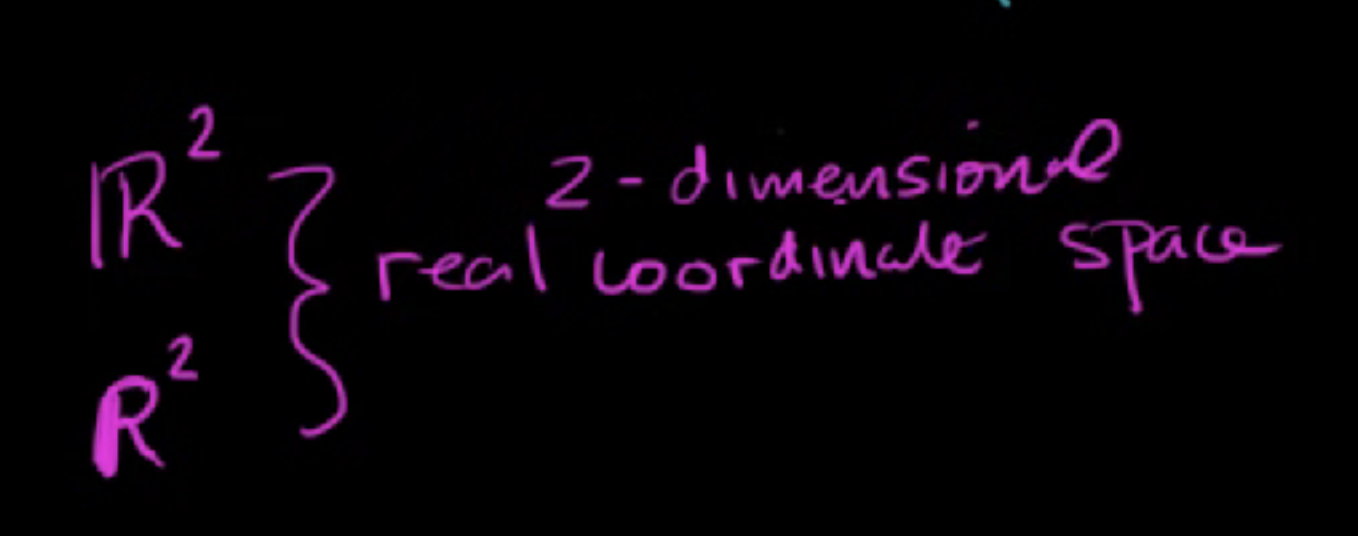 ℝ²
2-dimensional
real coordinate space
𝐑²